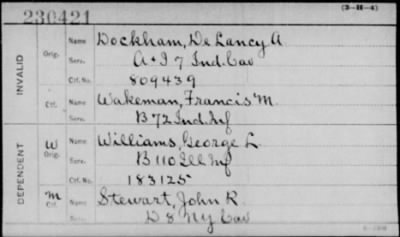 230421 (3-11-4)
INVALID Orig. Name Dockham, De Lancy A
Serv. A & I 7 Ind. Cav
Ctf. No. 809439
Ctf. Name Wakeman, Francis M.
Serv. B 72 Ind. Inf
DEPENDENT W Orig. Name Williams, George L.
Serv. B 110 Ill Inf
Ctf. No. 183125
M Ctf. Name Stewart, John R
Serv. D 8 NY Cav